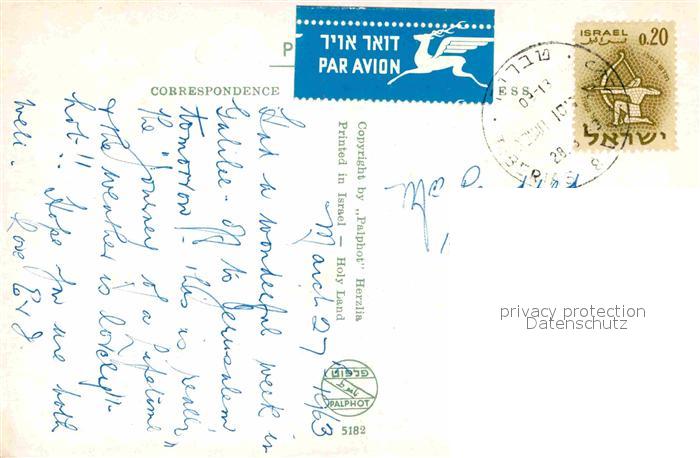 דואר אויר
PAR AVION
ISRAEL
0.20
ישראל
טבריה
09-13
28.3
CORRESPONDENCE
ESS
P
March 27th 1963
Had a wonderful week in
Galilee - off to Jerusalem
tomorrow - this is really
the "journey of a lifetime"
& the weather is lovely -
hot!! Hope you are both
well.
Love E & J.
Copyright by „Palphot" Herzlia
Printed in Israel — Holy Land
פלפוט
PALPHOT
5182
privacy protection
Datenschutz